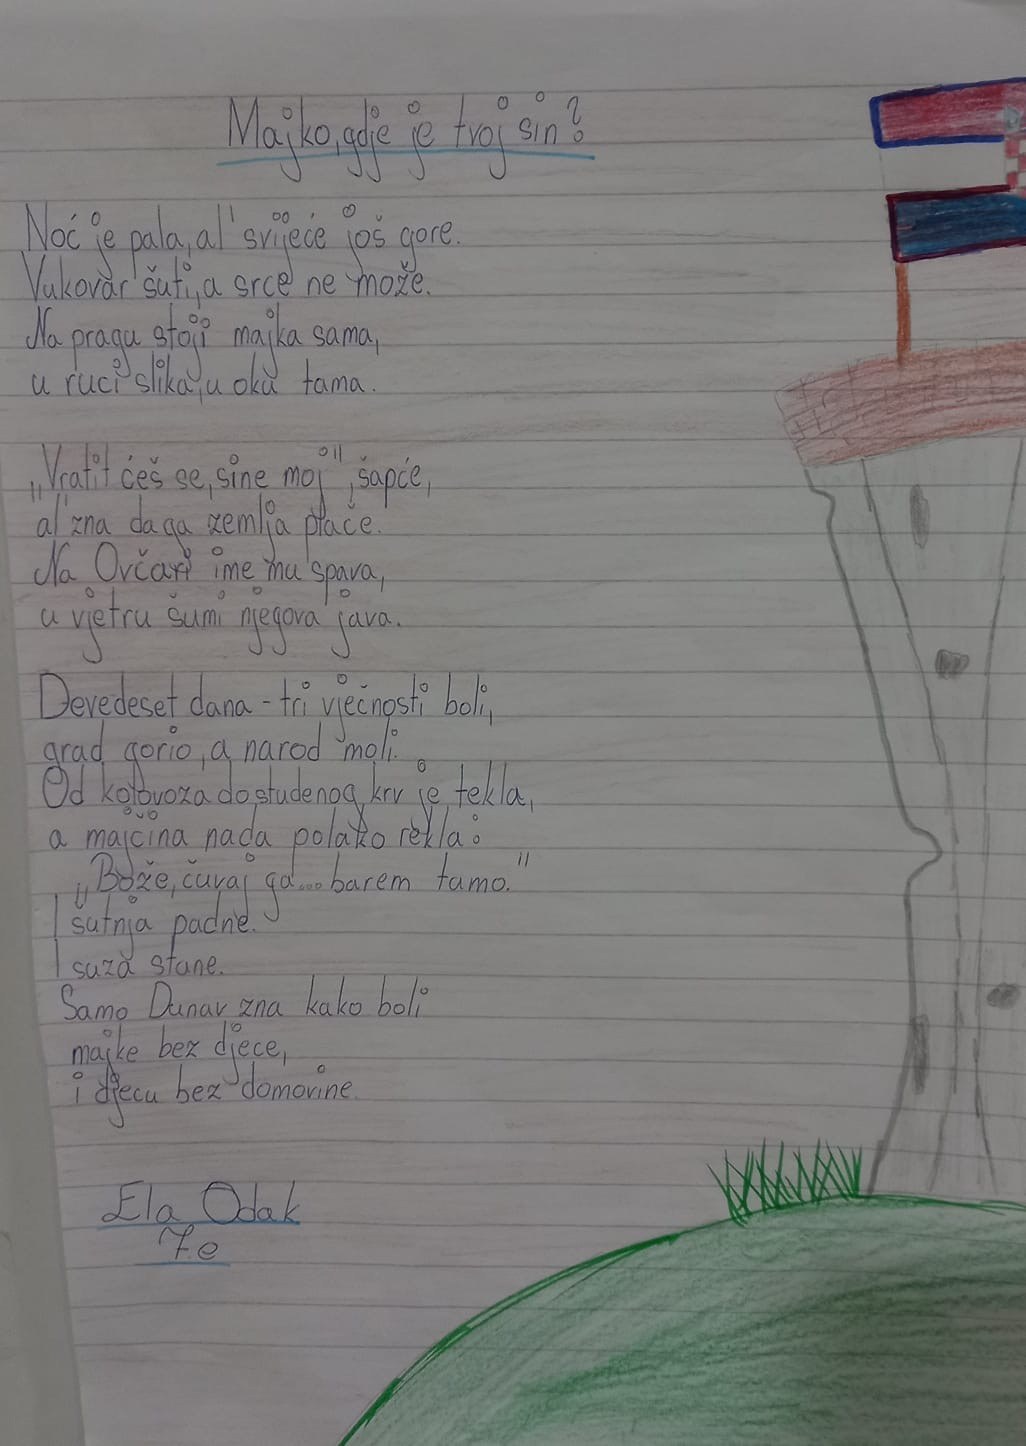 Majko, gdje je tvoj sin?
Noć je pala, al' svijeće još gore.
Vukovar šuti, a srce ne može.
Na pragu stoji majka sama,
u ruci slika, u oku tama.
„Vratit ćeš se, sine moj", šapće,
al' zna da ga zemlja plače.
Na Ovčari ime mu spava,
u vjetru šumi njegova java.
Devedeset dana - tri vječnosti boli,
grad gorio, a narod moli.
Od kolovoza do studenog krv je tekla,
a majčina nada polako rekla:
„Bože, čuvaj ga... barem tamo."
I šutnja padne.
I suza stane.
Samo Dunav zna kako boli
majke bez djece,
i djecu bez domovine.
Ela Odak
7.e